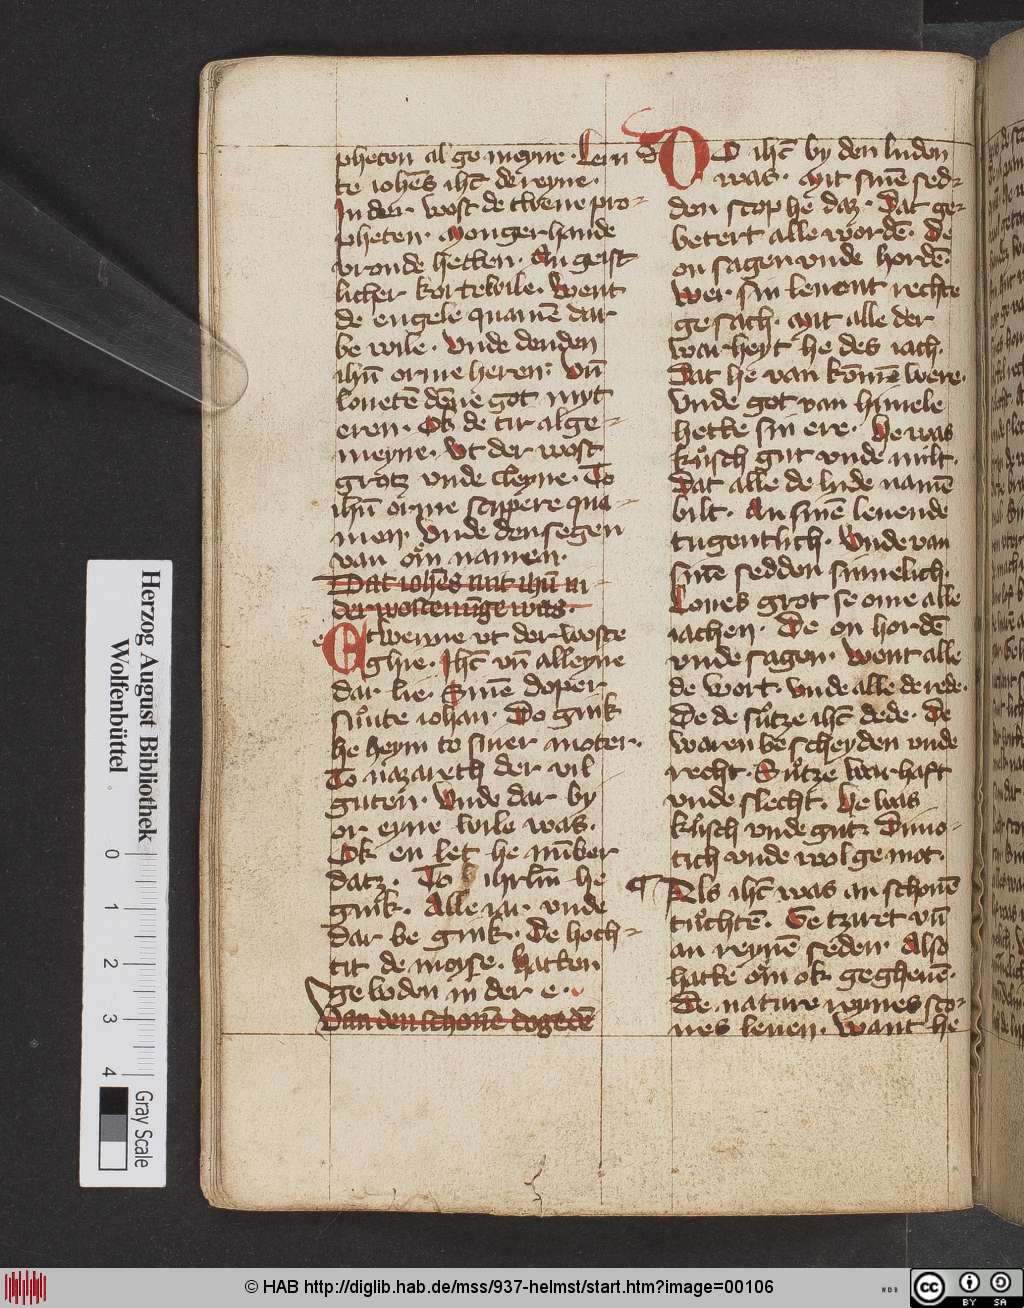 pheten al ge meyne · Lern
te iohēs ihc̄ de reyne ·
In der wost de twene pro-
pheten · Monger hande
vronde hetten · An geist
licher kortewile · Went
de engele quamē dar
be wile · Unde denden
ihū orme heren · Uñ
louetē dēme got myt
eren · Ok de tir alge-
meyne · Ut der wost
grotz unde cleyne · To
ihū orme scipere qua-
men · Unde den segen
van om namen ·
Dat iohēs mit ihū in
der wostenūge was ·
e Etwenne ut der woste
ghie · Ihc̄ uñ alleyne
dar lie · Sinē doper
sunte iohan · Do gink
he heym to siner moter ·
To nazareth der vil
guten · Unde dar by
or eyne wile was ·
Ok en let he nūber
datz · To ihrl̄m he
gink · Alle iar unde
dar be gink · De hoch-
tit de moyse · Hatten
ge boden in der e ·
Van den schonē dogedē
d DO ihc̄ by den luden
was · Mit sinē sed-
den stop he daz · Dat ge-
betert alle wordē · De
on sagen unde hordē ·
Wer sin leuent rechte
ge sach · Mit alle der
warheyt he des iach ·
Dat he van komē were ·
Unde got van himele
hette sin ere · He was
kusch gut unde milt ·
Dat alle de lude namē
bilt · An sinē leuende
tugentlich · Unde van
sinē sedden sinnelich ·
Loues grot se ome alle
iachen · De on hordē
unde sagen · Went alle
de wort · Unde alle de rede ·
De de sutze ihc̄ dede · De
waren be scheyden unde
recht · Sutze warhaft
unde slecht · He was
kusch unde gutz Dimo-
tich unde wol ge mot ·
Als ihc̄ was an schonē
tuchtē · Ge tziret uñ
an reynē seden · Also
hatte om ok gegheuē ·
De nature reynes sto-
nes leuen · Want he
Herzog August Bibliothek
Wolfenbüttel
0 1 2 3 4
Gray Scale
© HAB http://diglib.hab.de/mss/937-helmst/start.htm?image=00106
WDB
cc
BY SA